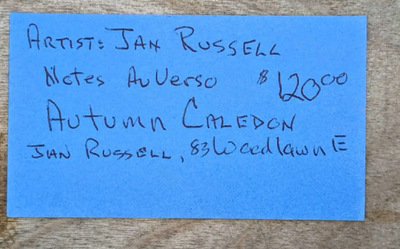 ARTIST: JAN RUSSELL
NOTES AU VERSO $120.00
AUTUMN CALEDON
JAN RUSSELL, 83 Woodlawn E